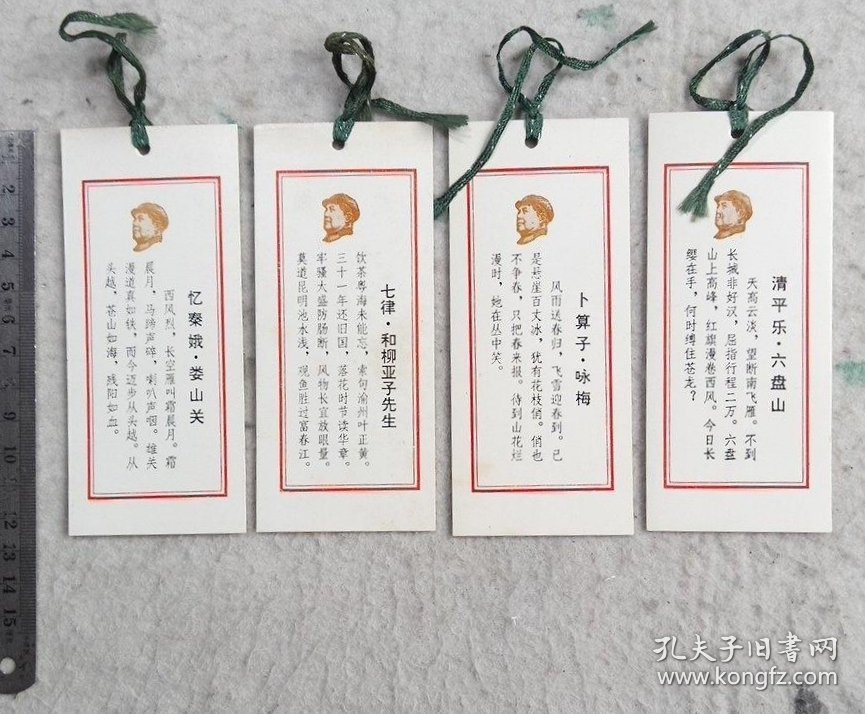 忆秦娥·娄山关
西风烈，长空雁叫霜晨月。霜
晨月，马蹄声碎，喇叭声咽。雄关
漫道真如铁，而今迈步从头越。从
头越，苍山如海，残阳如血。
七律·和柳亚子先生
饮茶粤海未能忘，索句渝州叶正黄。
三十一年还旧国，落花时节读华章。
牢骚太盛防肠断，风物长宜放眼量。
莫道昆明池水浅，观鱼胜过富春江。
卜算子·咏梅
风雨送春归，飞雪迎春到。已
是悬崖百丈冰，犹有花枝俏。俏也
不争春，只把春来报。待到山花烂
漫时，她在丛中笑。
清平乐·六盘山
天高云淡，望断南飞雁。不到
长城非好汉，屈指行程二万。六盘
山上高峰，红旗漫卷西风。今日长
缨在手，何时缚住苍龙？
2 3 4 5 6 7 8 9 10 11 12 13 14 15
孔夫子旧书网
www.kongfz.com